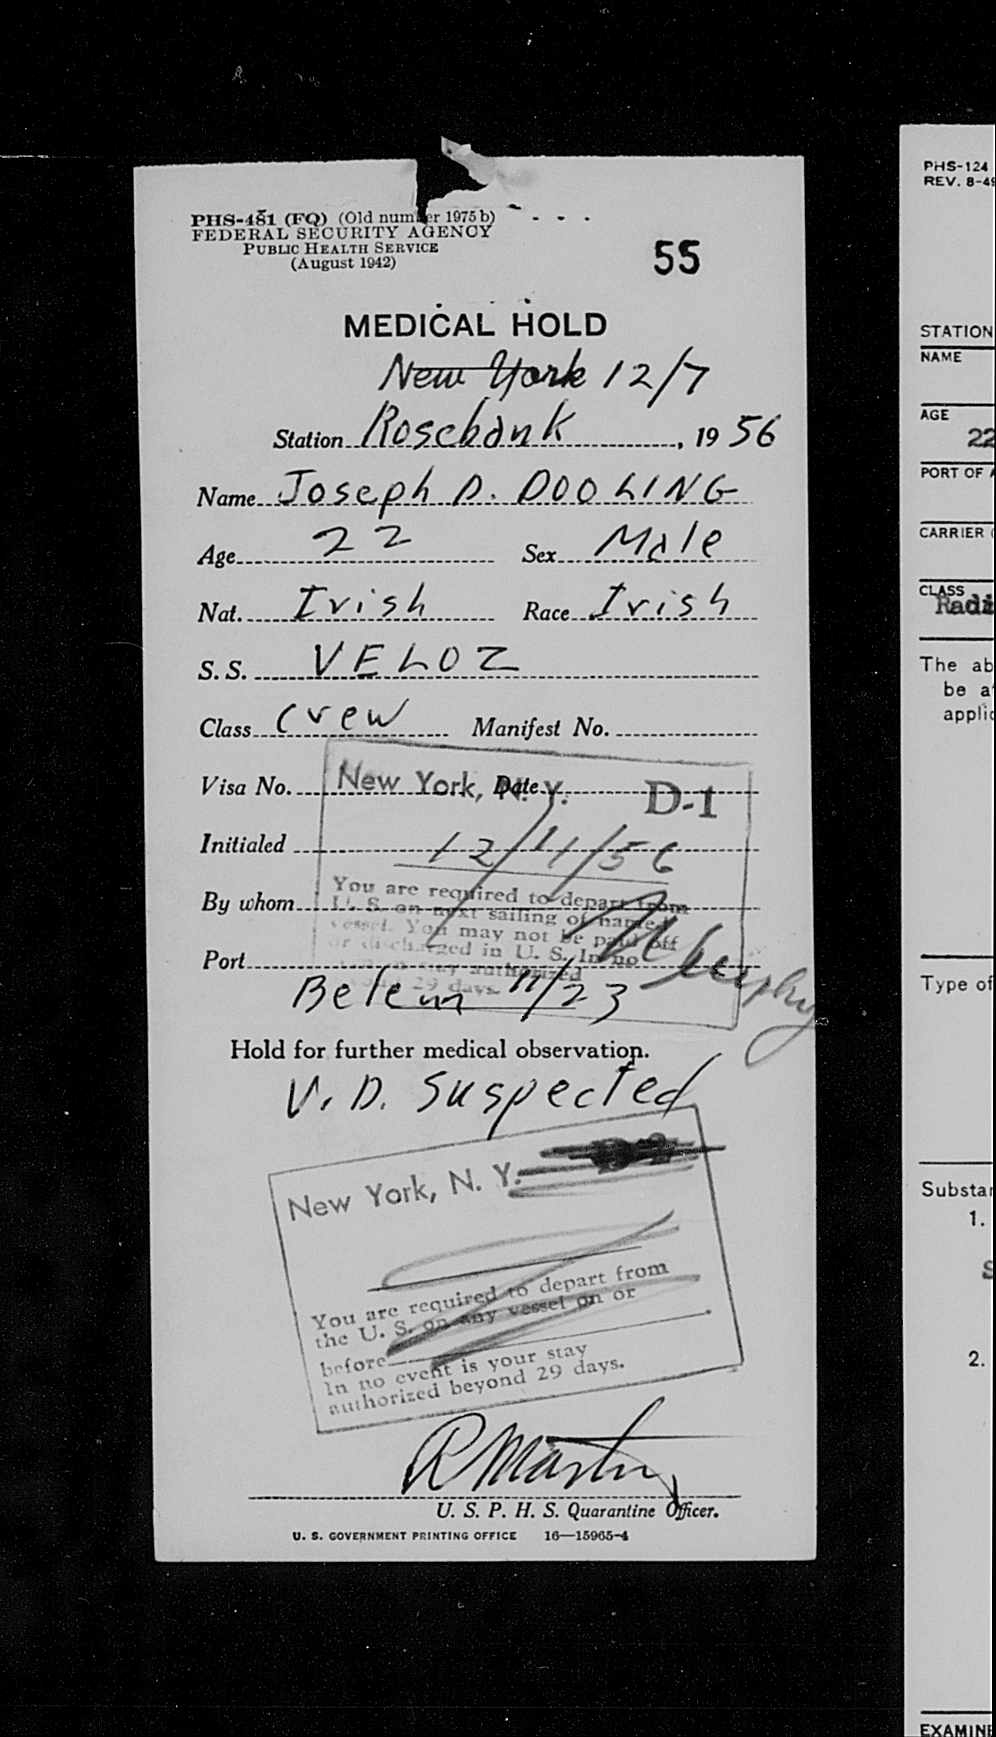 PHS-481 (FQ) (Old number 1975b)
FEDERAL SECURITY AGENCY
PUBLIC HEALTH SERVICE
(August 1942)
55
MEDICAL HOLD
New York 12/7
Station Rosebank, 19 56
Name Joseph D. DOOLING
Age 22 Sex Male
Nat. Irish Race Irish
S. S. VELOZ
Class Crew Manifest No.
Visa No. Date
New York, N. Y. D-1
Initialed
12/11/56
By whom
You are required to depart from
U. S. on next sailing of named
vessel. You may not be paid off
or discharged in U. S. In no
authorized
29 days.
Port
Belem 11/23
Hold for further medical observation.
V. D. Suspected
New York, N. Y.
You are required to depart from
the U. S. on any vessel on or
before
In no event is your stay
authorized beyond 29 days.
R Martin
U. S. P. H. S. Quarantine Officer.
U. S. GOVERNMENT PRINTING OFFICE 16—15965-4
PHS-124
REV. 8-49
STATION
NAME
AGE
22
PORT OF
CARRIER
CLASS
Radi
The ab
be a
applic
Type of
Substan
1.
S
2.
EXAMINE